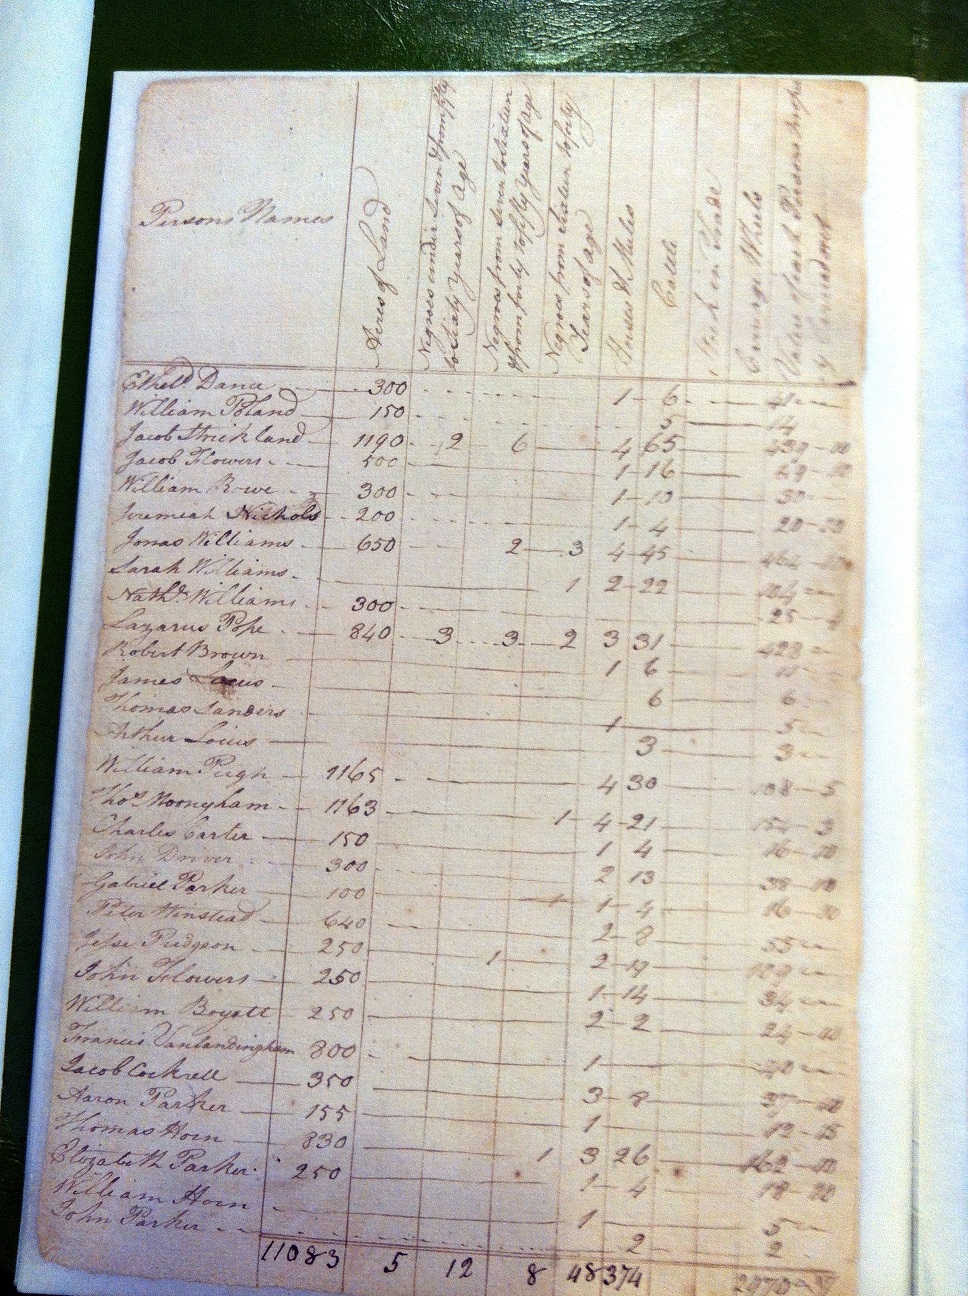 Persons Names
Acres of Land
Negroes under Seven & from fifty to Sixty Years of Age
Negroes from Seven to Sixteen & from forty to fifty Years of Age
Negroes from Sixteen to forty Years of age
Horses & Mules
Cattle
Stock in Trade
Carriage Wheels
Value of each Persons
Etheld. Dance 300 1 6
William Poland 150 5 14
Jacob Strickland 1190 2 6 4 65
Jacob Flowers 500 1 16
William Rowe 300 1 10 30
Jeremeah Nichols 200 1 4
Jonas Williams 650 2 3 4 45
Sarah Williams 1 2 22
Nathl. Williams 300 25
Lazarus Pope 840 3 3 2 3 31 428
Robert Brown 1 6 11
James 6 6
Thomas Sanders 1 5
Arthur 3 3
William Pugh 1165 4 30 108 5
Thos. 1163 1 4 21 3
Charles Carter 150 1 4 16 10
John Driver 300 2 13 38 10
Gabriel Parker 100 1 4 16
Peter Winstead 640 2 8 55
Jesse Pridgeon 250 1 2 19 109
John Flowers 250 1 14 34
William Boyatt 250 2 2 24 10
Francis Vanlandingham 800 1 40
Jacob Cockrell 350 3 8 37 10
Aaron Parker 155 1 12 15
Thomas Horn 830 1 3 26 162 10
Elizabeth Parker 250 1 4 18
William Horn 1 5
John Parker 2 2
11083 5 12 8 48 374